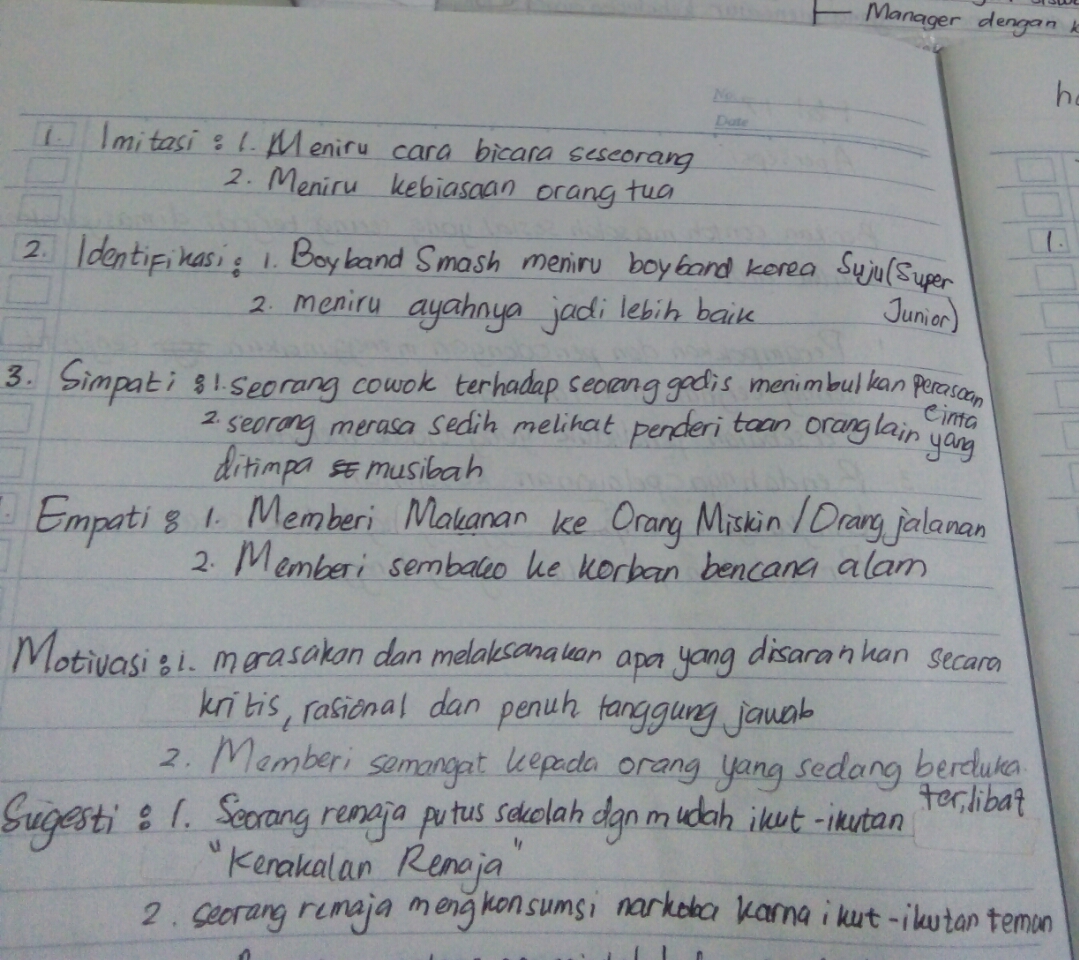 Manager dengan k
No.
Date
1. Imitasi : 1. Meniru cara bicara seseorang
2. Meniru kebiasaan orang tua
2. Identifikasi : 1. Boyband Smash meniru boyband korea Suju (Super
Junior)
2. meniru ayahnya jadi lebih baik
3. Simpati : 1. seorang cowok terhadap seorang gadis menimbulkan perasaan
cinta
2. seorang merasa sedih melihat penderitaan orang lain yang
ditimpa musibah
Empati : 1. Memberi Makanan ke Orang Miskin / Orang jalanan
2. Memberi sembako ke korban bencana alam
Motivasi : 1. merasakan dan melaksanakan apa yang disarankan secara
kritis, rasional dan penuh tanggung jawab
2. Memberi semangat kepada orang yang sedang berduka.
Sugesti : 1. Seorang remaja putus sekolah dgn mudah ikut-ikutan terlibat
"Kenakalan Remaja"
2. seorang remaja mengkonsumsi narkoba karna ikut-ikutan teman
1.